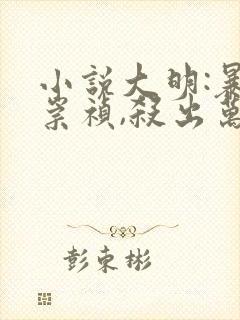 小說大明:暴
崇禎,殺出萬
彭東彬